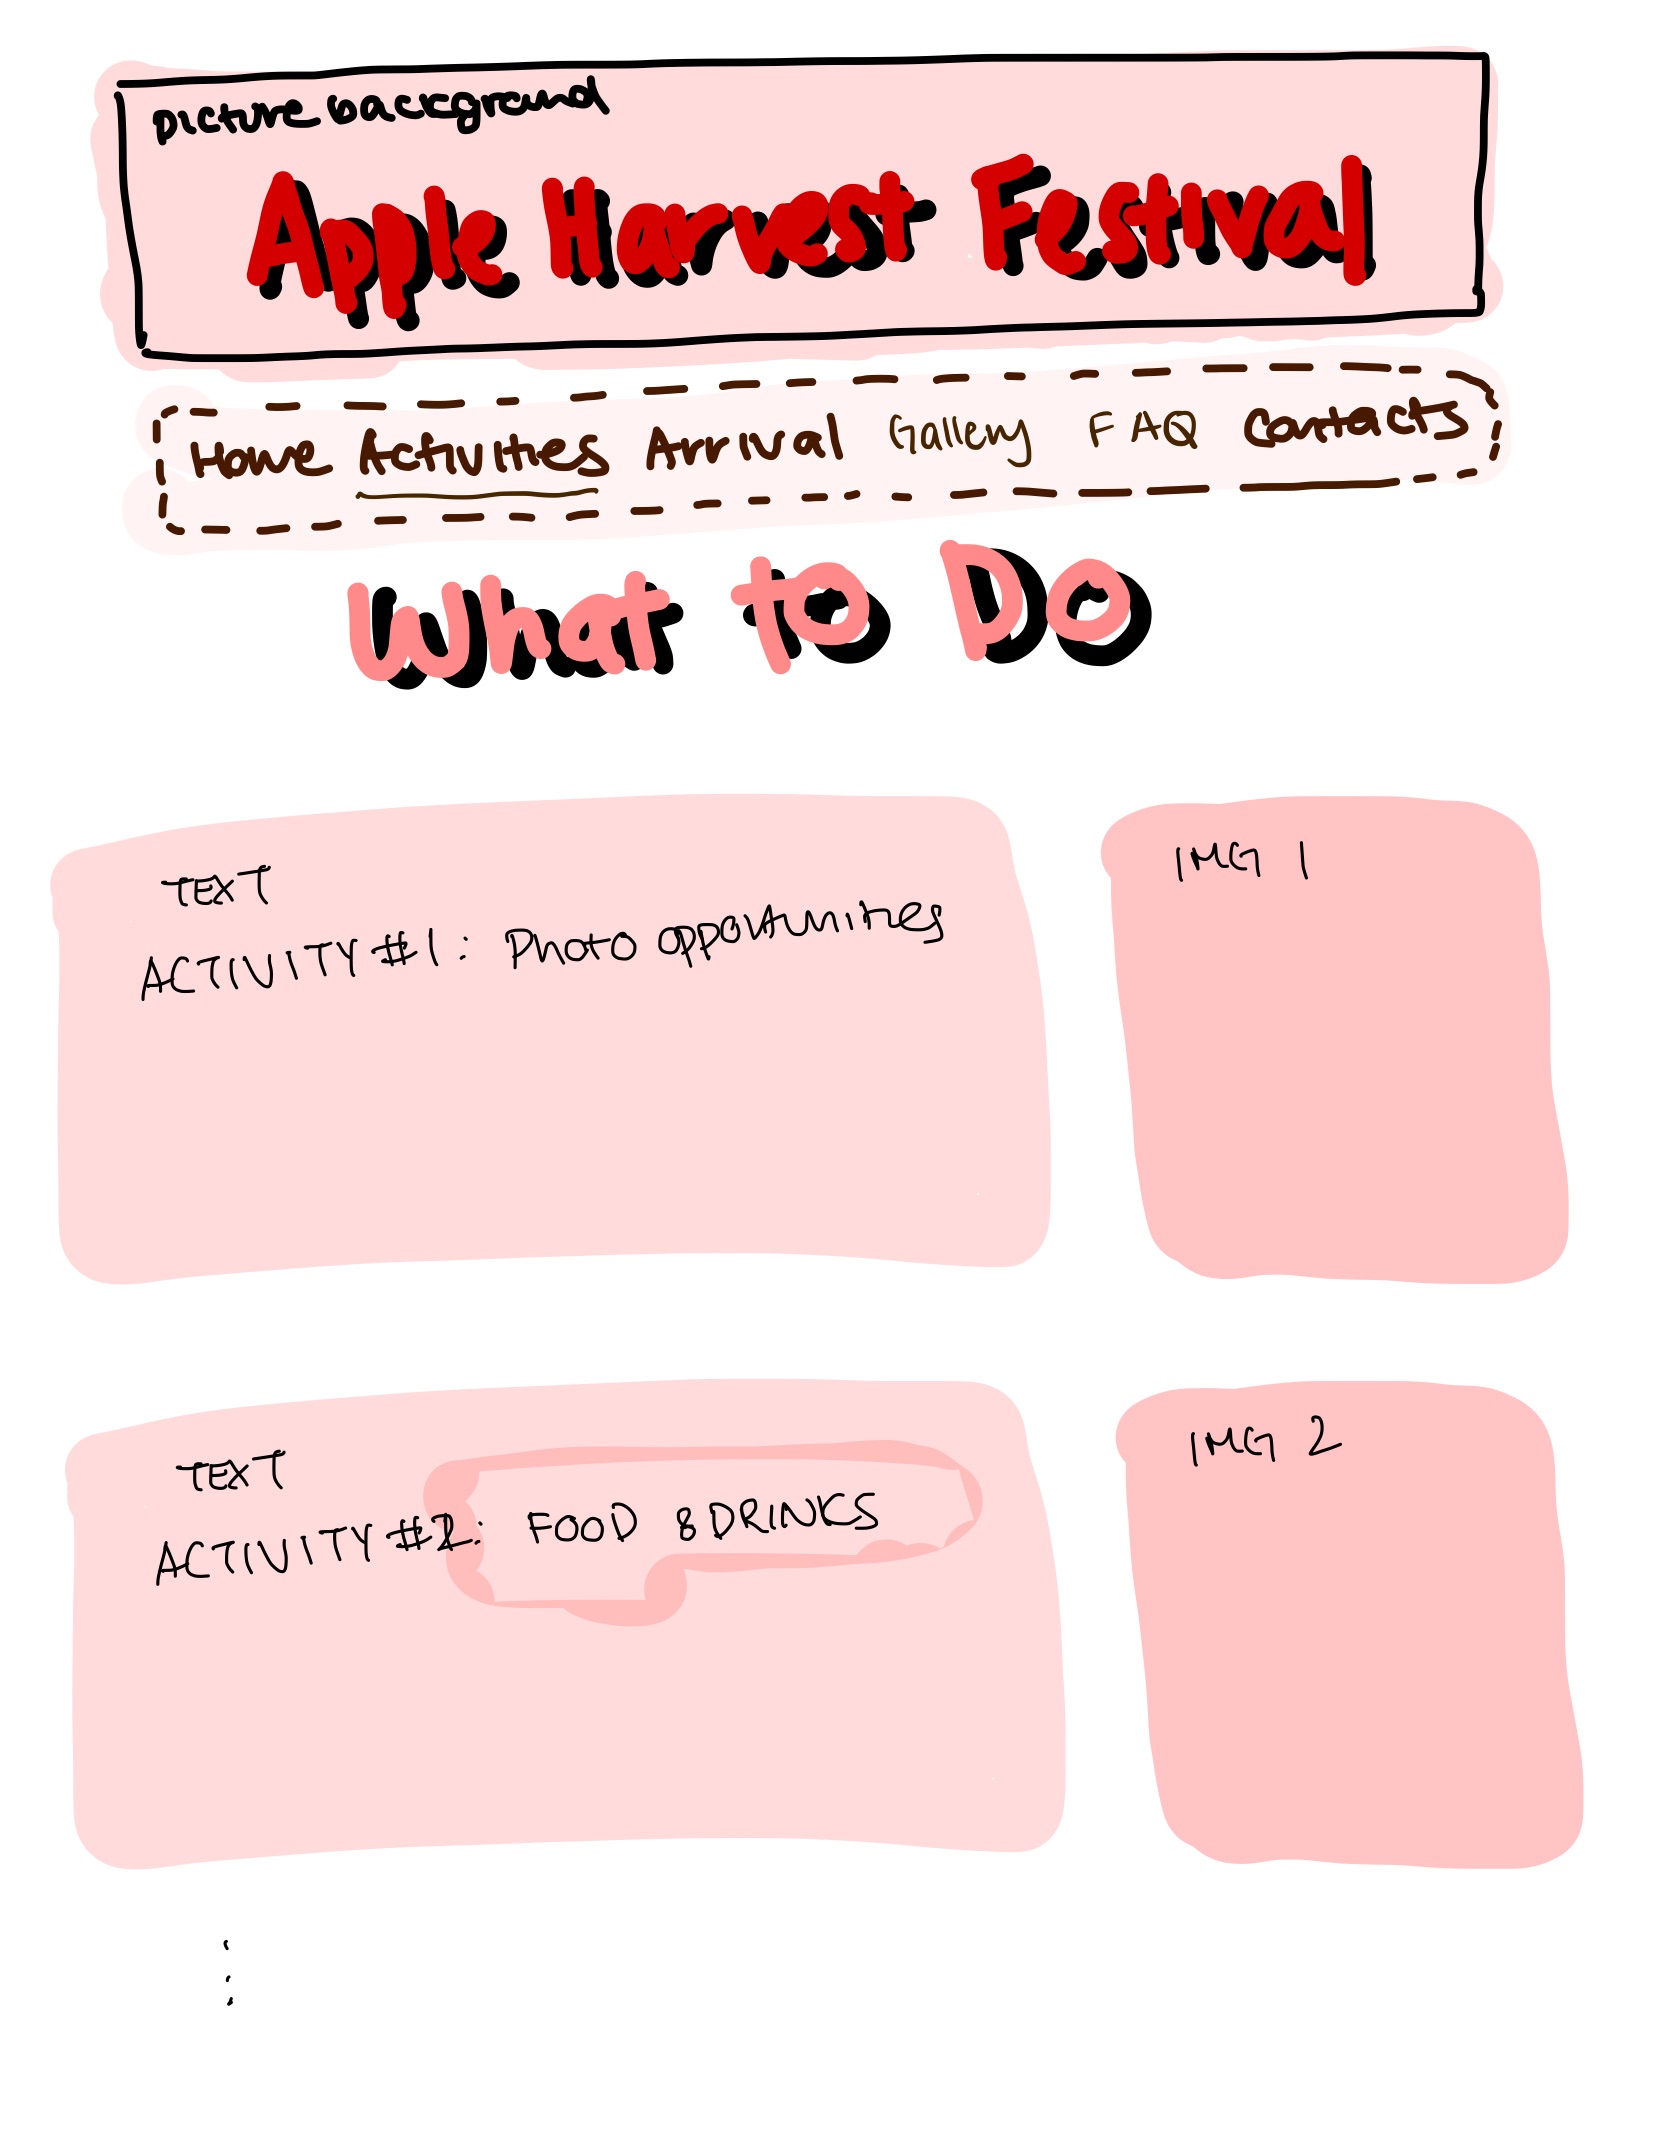 picture background
Apple Harvest Festival
Home Activities Arrival Gallery FAQ Contacts
What to Do
TEXT
ACTIVITY #1: Photo opportunities
IMG 1
TEXT
ACTIVITY #2: FOOD & DRINKS
IMG 2